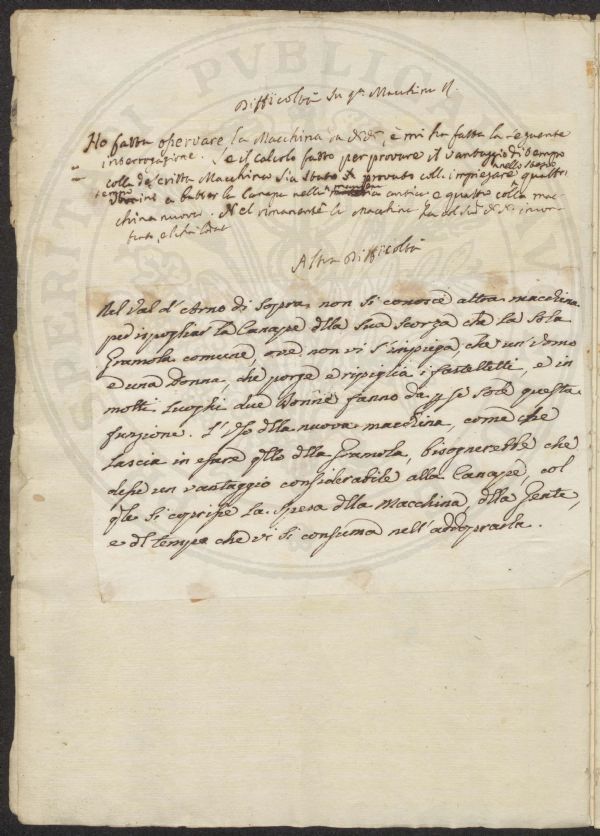 Difficoltà su q.ta Macchina
Ho fatta osservare la Macchina da è mi ha fatta la seguente
interrogazione. Se il calcolo fatto per provare il vantaggio di tempo
nello stesso
colla descritta Macchina sia stato provato coll' impiegare quattro
tempo a batter la Canapa nella antica e quattro colla mac-
china nuova. Nel rimanente la Macchina
Altra Difficoltà
Nel Val d'Arno di Sopra non si conosce altra macchina
per ispogliar la Canape dlla sua scorza che la sola
Gramola comune, ove non vi s'impiega, che un Uomo
e una Donna, che porge e ripiglia i fastelletti, e in
molti Luoghi due Donne fanno da p se sole questa
funzione. L'Uso dlla nuova macchina, come che
lascia in essere qllo dlla Gramola, bisognerebbe che
desse un vantaggio considerabile alla Canape, col
qle si coprisse la spesa dlla Macchina, dlla Gente,
e dl tempo che vi si consuma nell'adoprarla.